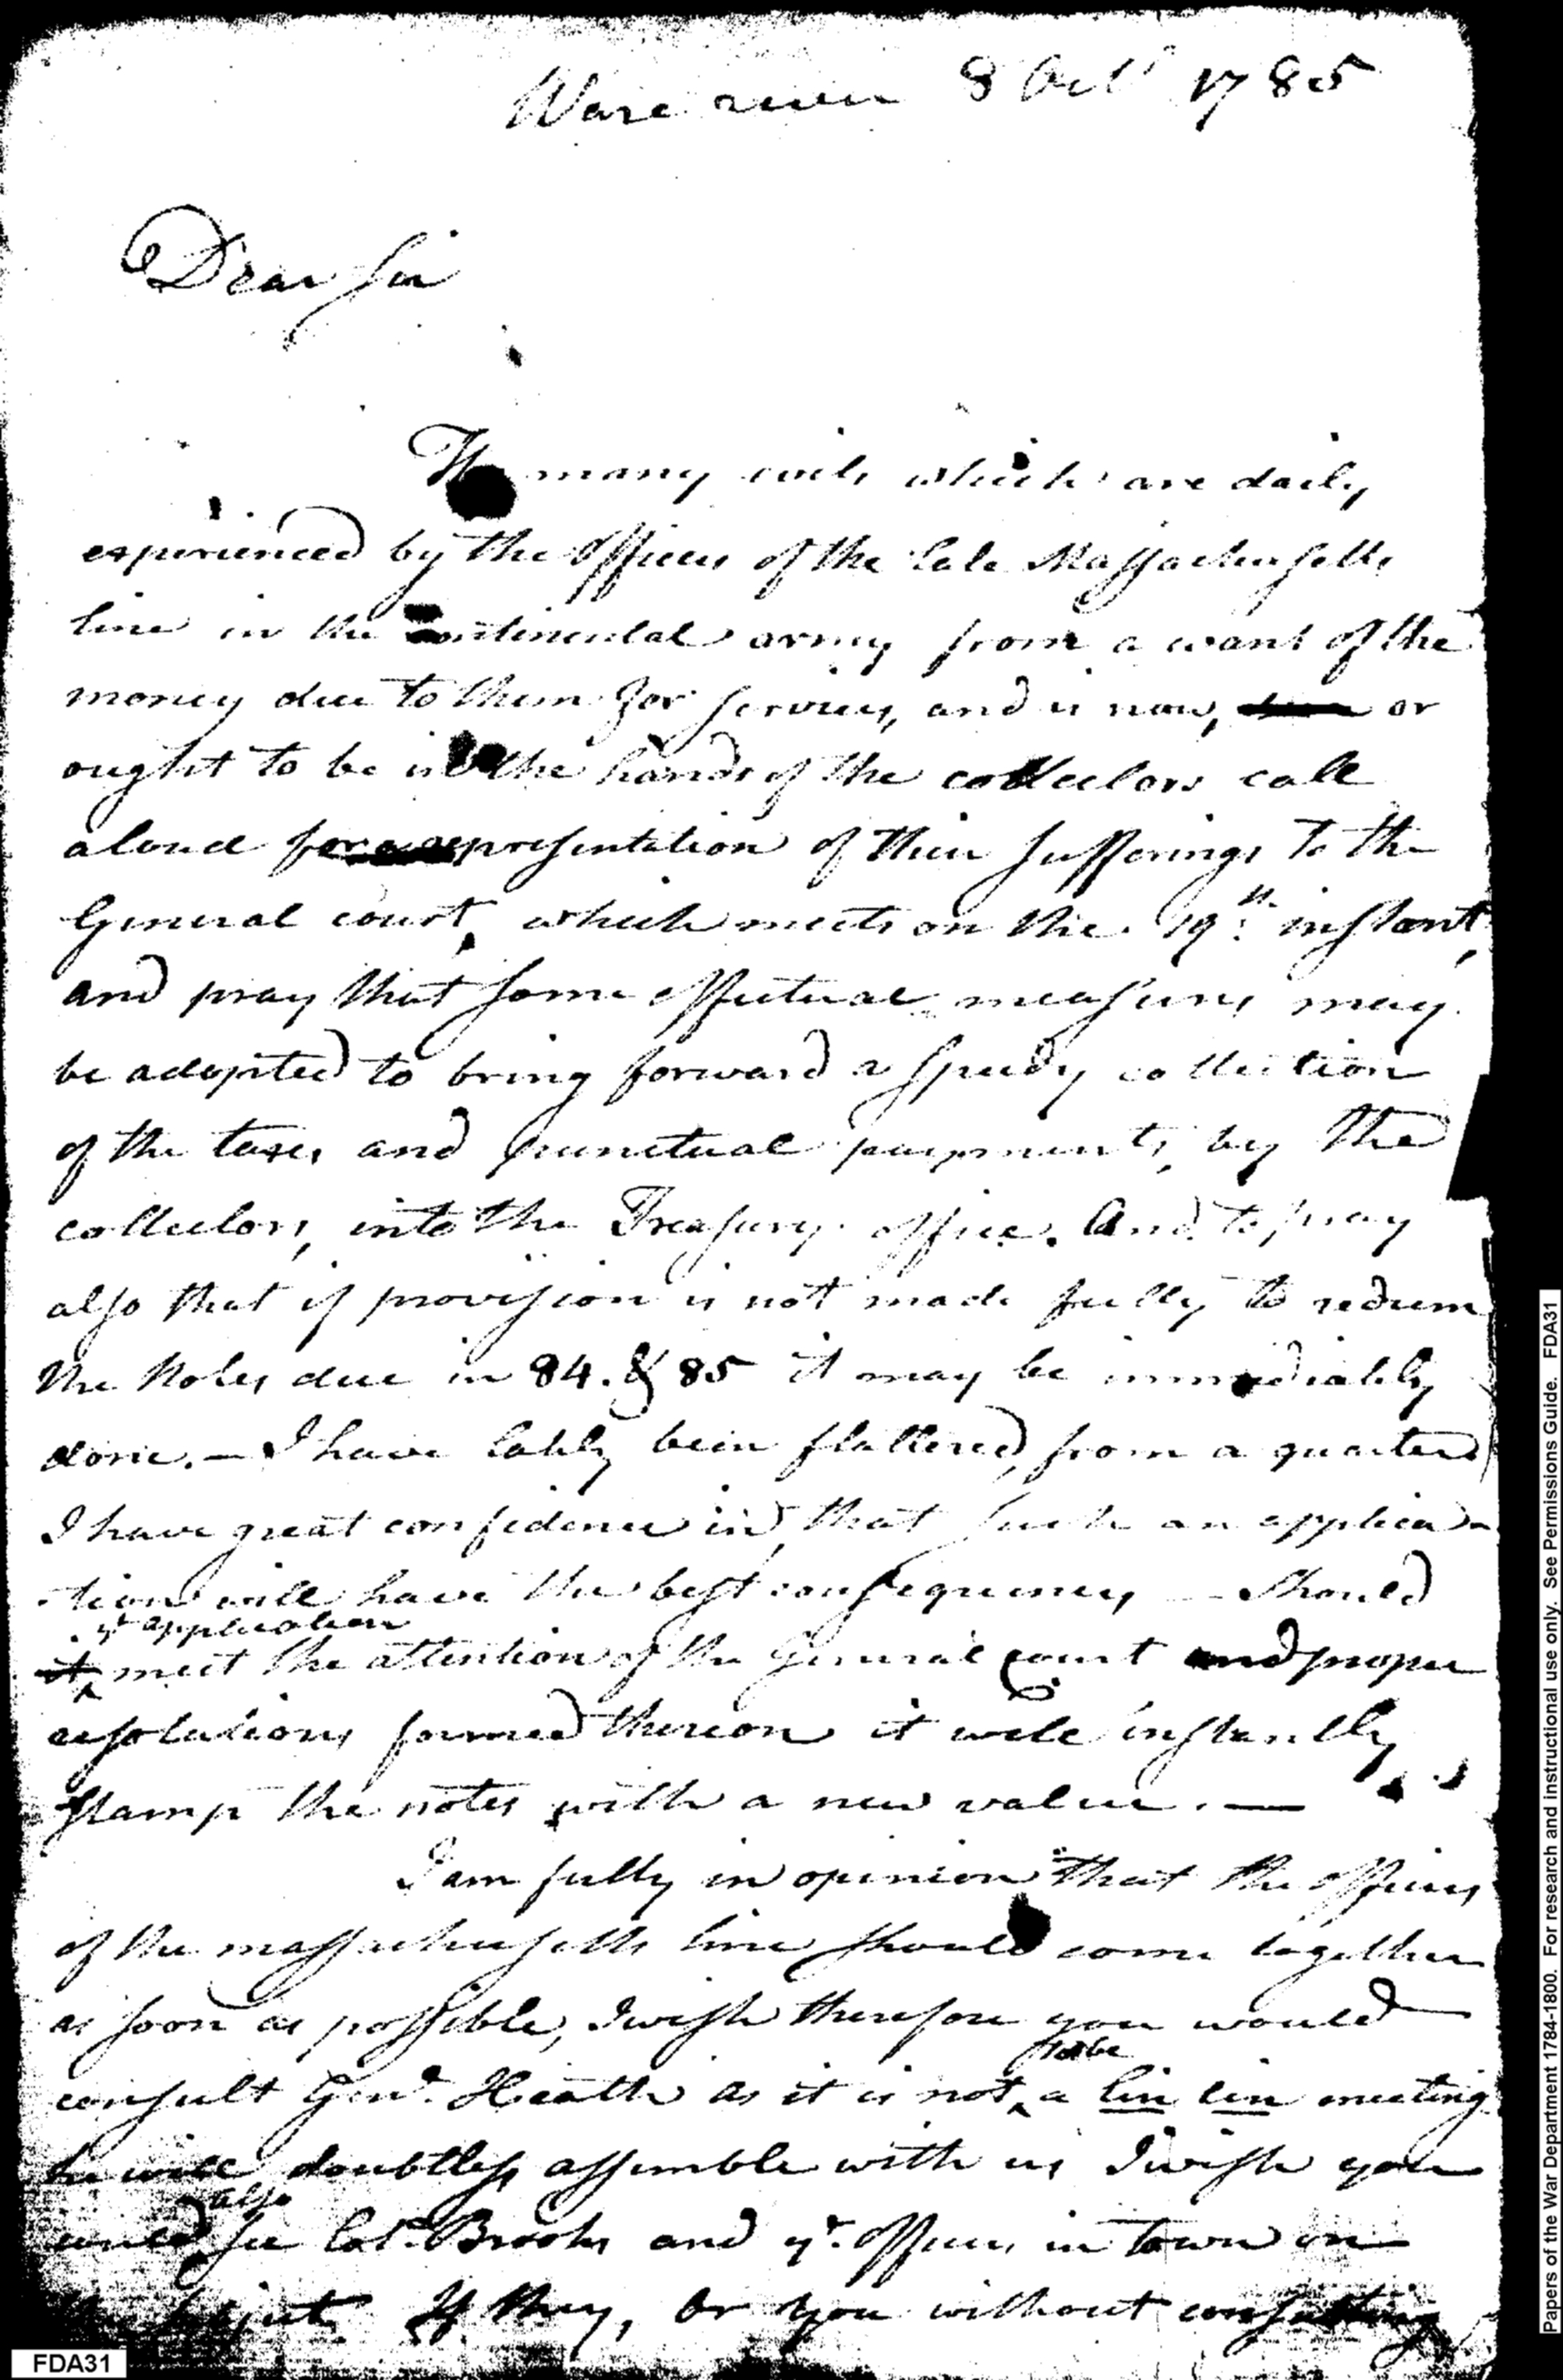 Ware river 8 Octr 1785
Dear Sir
The many evils which are daily
experienced by the officers of the late Massachusetts
line in the continental army from a want of the
money due to them for services, and is now, or
ought to be in the hands of the collectors call
aloud for a representation of their sufferings to the
General court, which meets on the 19th instant,
and pray that some effectual measures may
be adopted to bring forward a speedy collection
of the taxes and punctual payments, by the
collectors, into the Treasury office. And to pray
also that if provision is not made fully to redeem
the Notes due in 84. & 85 it may be immediately
done. — I have lately been flattered, from a quarter
I have great confidence in, that such an applica-
-tion will have the best consequences — Should
yt application
it meet the attention of the General court and proper
resolutions formed thereon it will instantly
stamp the notes with a new value. —
I am fully in opinion that the officers
of the massachusetts line should come together
as soon as possible, I wish therefore you would
to be
consult Genl. Heath as it is not a Cin cin meeting
he will doubtless assemble with us I wish you
also
would see Col. Brooks and yr. officers in town on
the subject If they, or you without consulting
FDA31
Papers of the War Department 1784-1800. For research and instructional use only. See Permissions Guide. FDA31